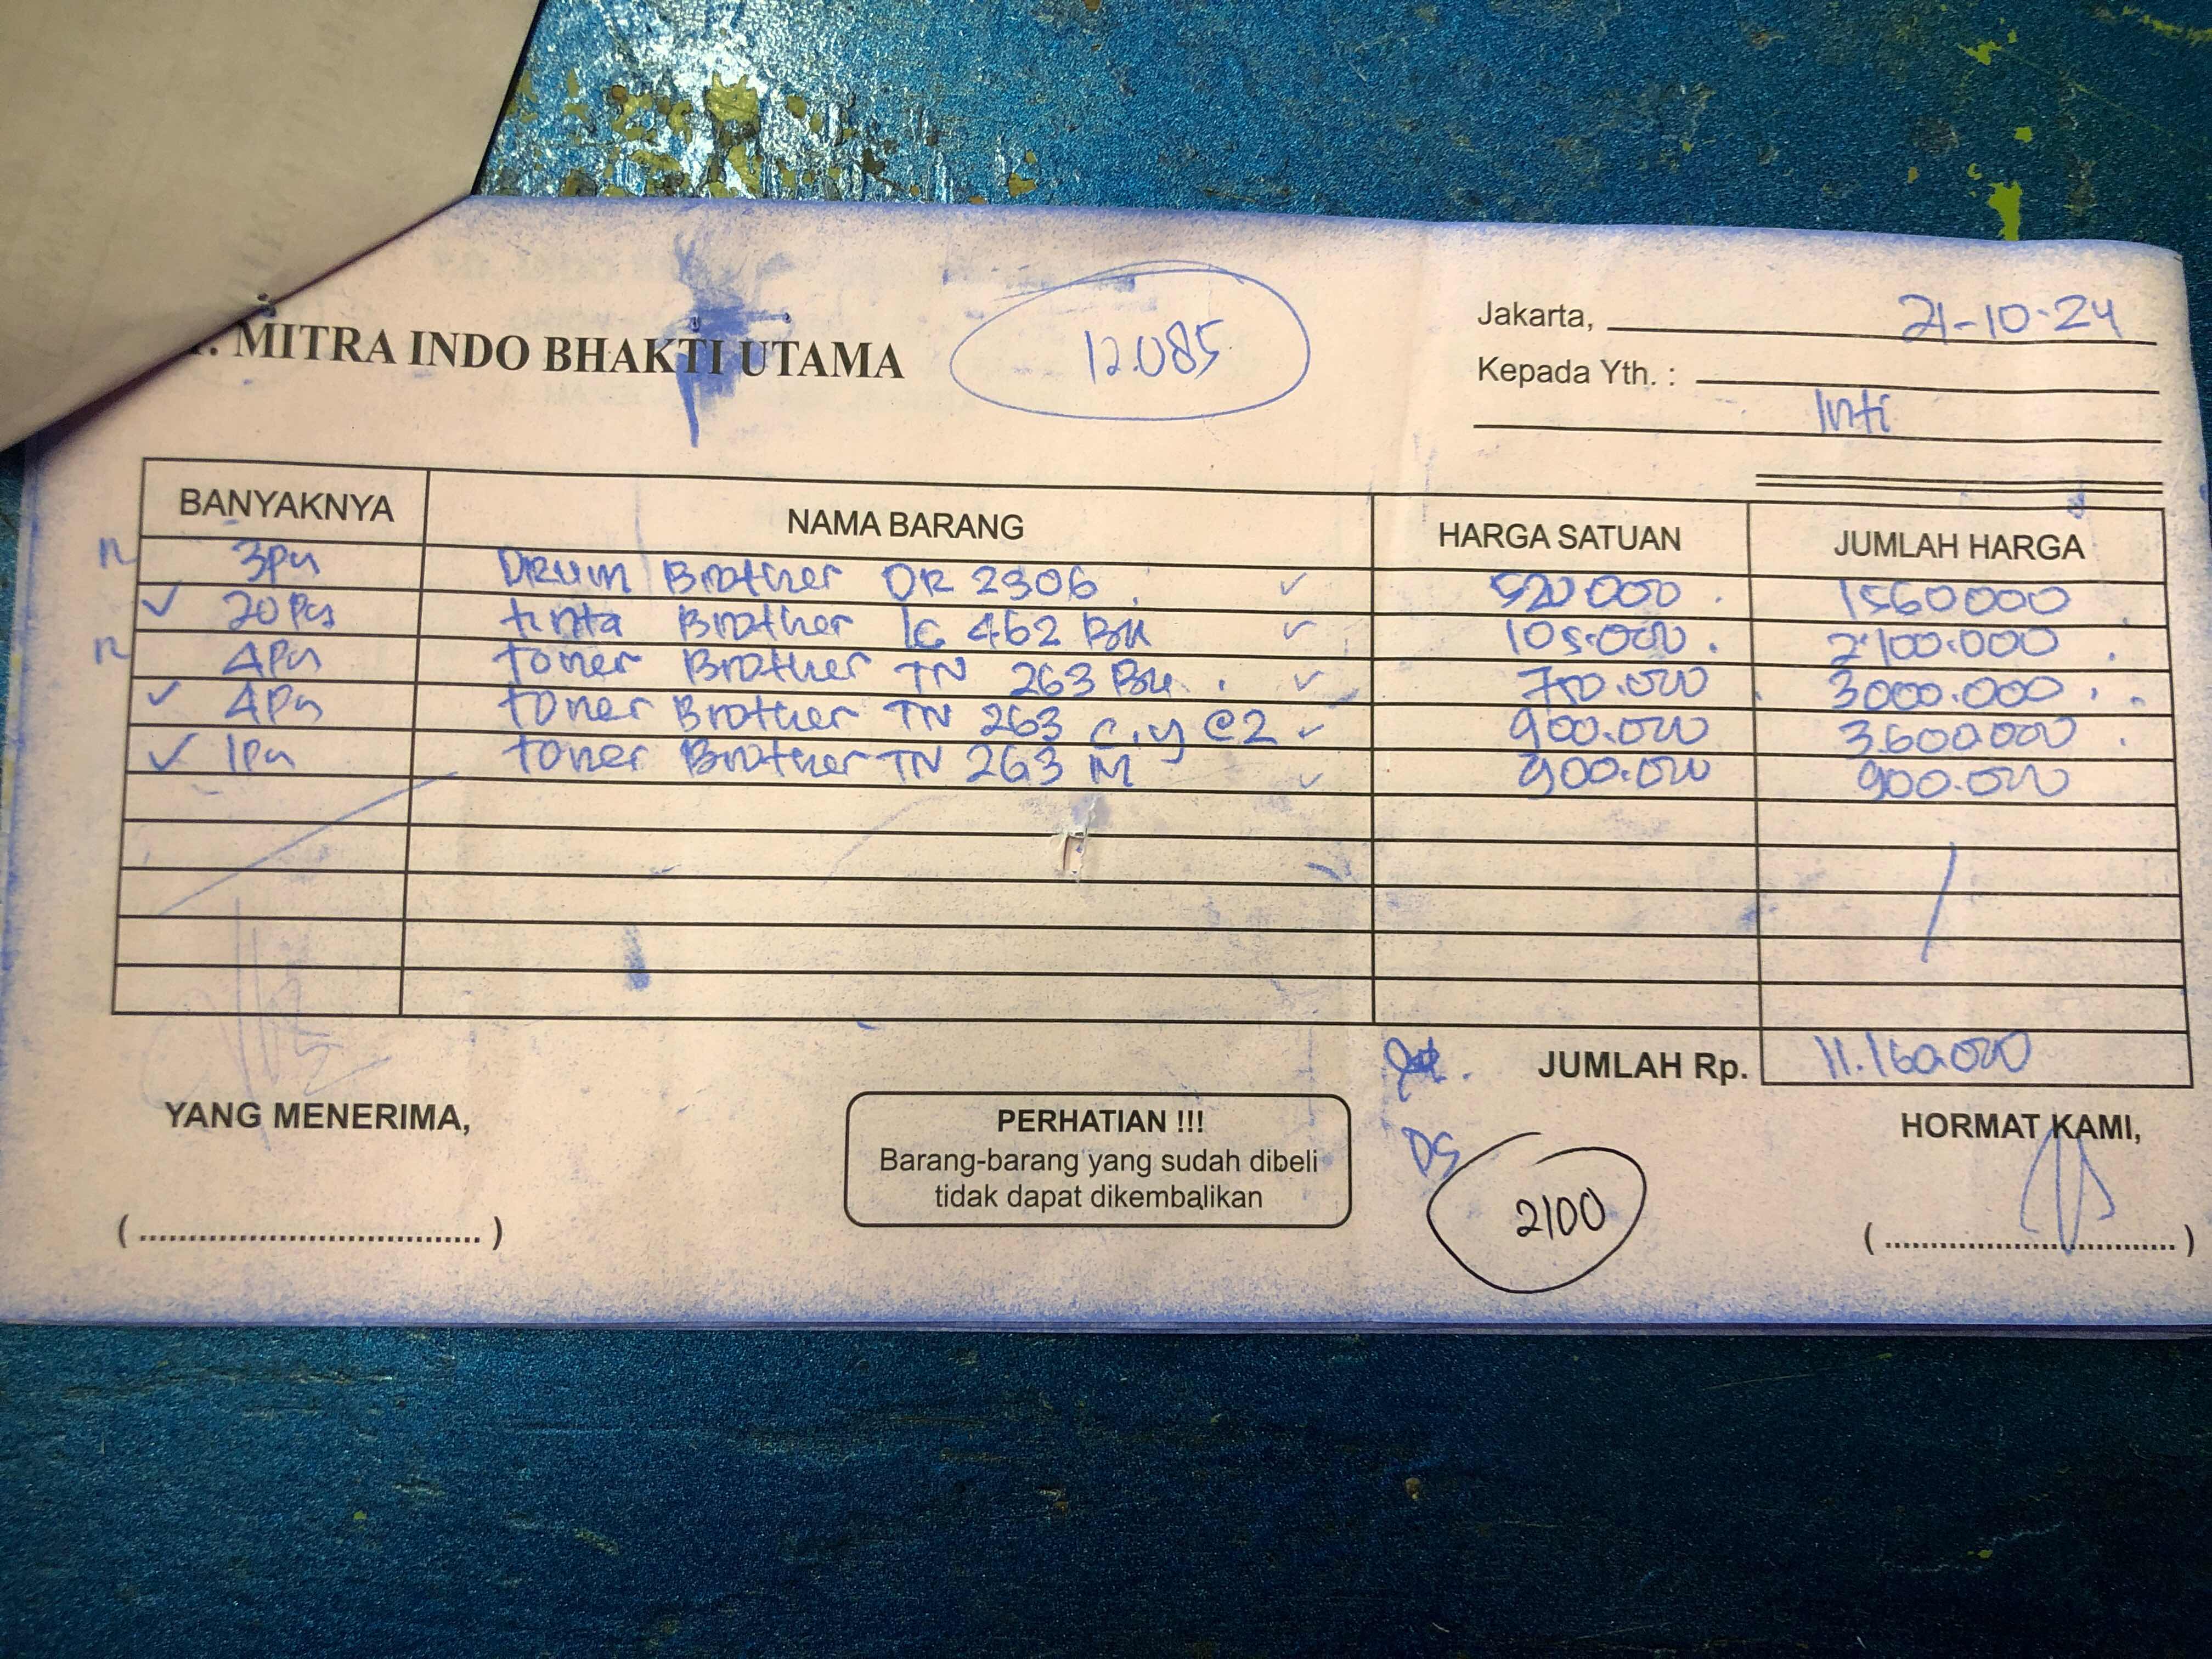 MITRA INDO BHAKTI UTAMA
12.085
Jakarta, 21-10-24
Kepada Yth. :
Inti
BANYAKNYA NAMA BARANG HARGA SATUAN JUMLAH HARGA
3pcs Drum Brother DR 2306 520.000 1560000
20 Pcs tinta Brother lc 462 BK 105.000 2.100.000
4Pcs toner Brother TN 263 BK 750.000 3000.000
4Pcs toner Brother TN 263 C,y @2 900.000 3.600.000
1Pcs toner Brother TN 263 M 900.000 900.000
JUMLAH Rp. 11.160.000
YANG MENERIMA,
PERHATIAN !!!
Barang-barang yang sudah dibeli
tidak dapat dikembalikan
DS
2100
HORMAT KAMI,
(....................................)
(....................................)